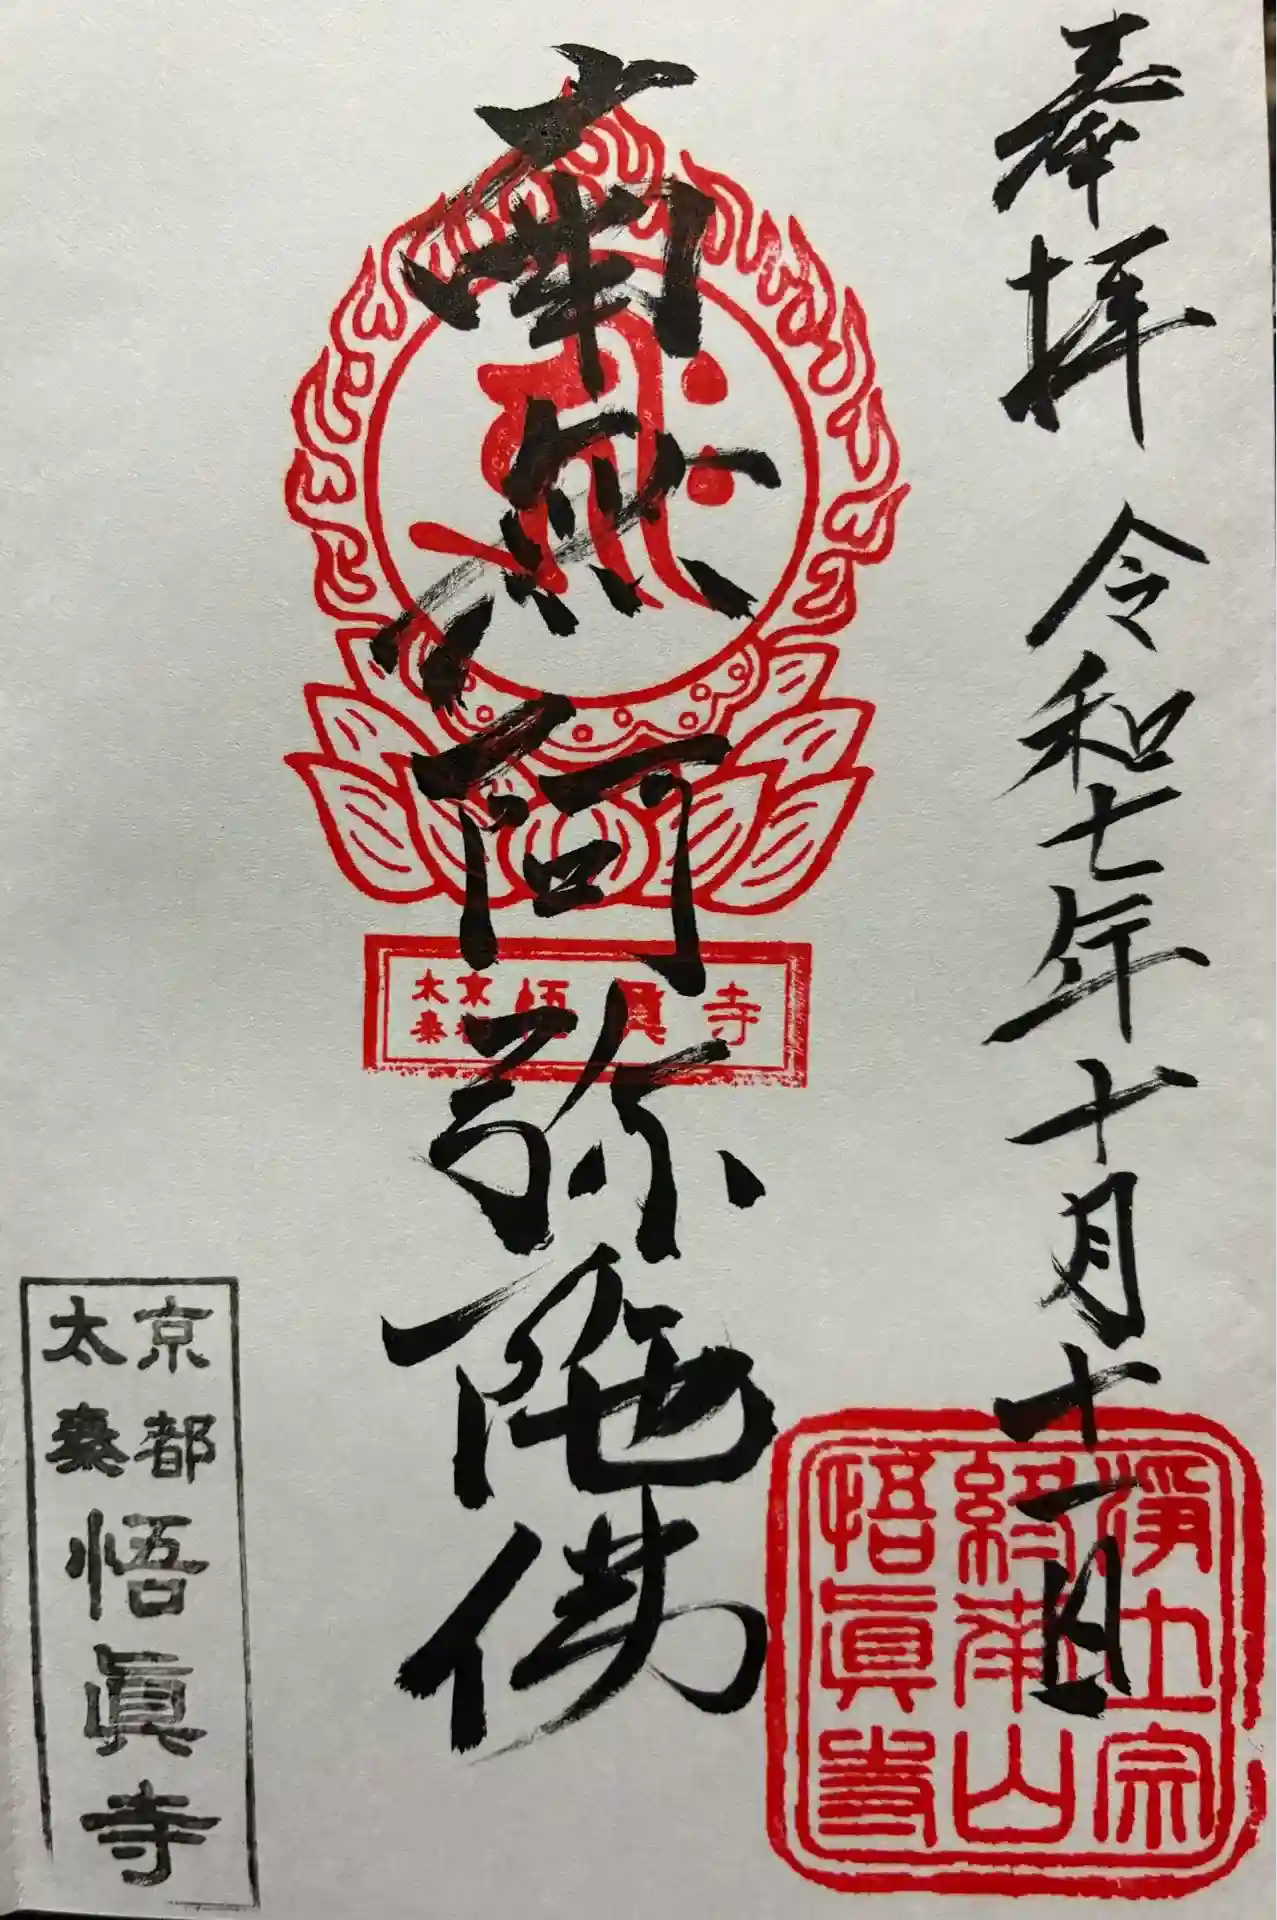 奉拝 令和七年十月十一日
南無阿弥陀佛
京都
太秦
悟眞寺
京都
太秦
悟眞寺
浄土宗
終南山
悟眞寺